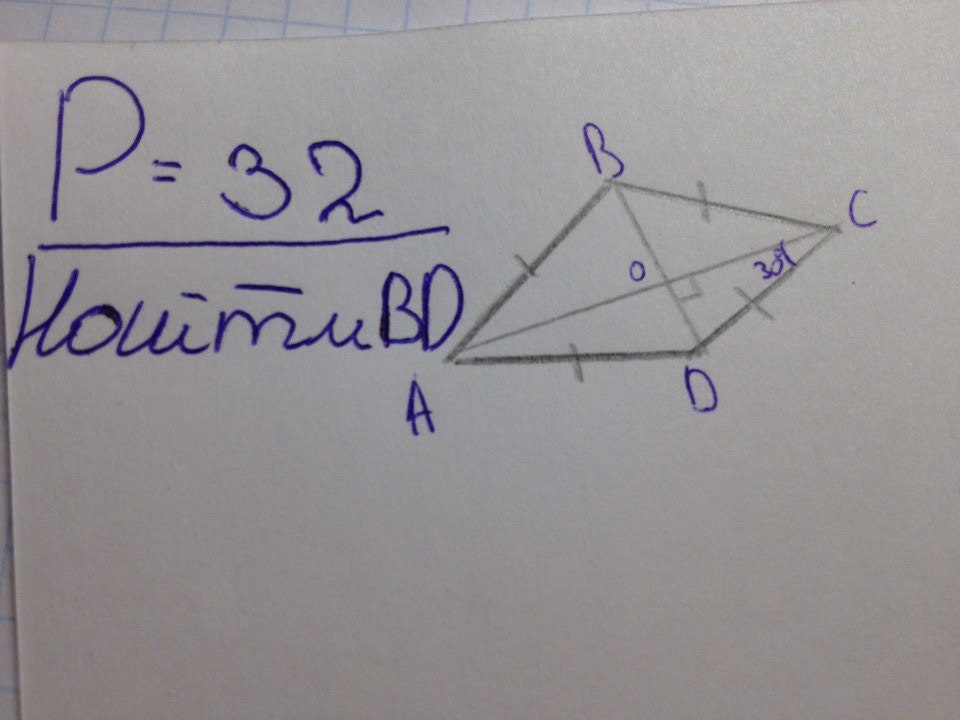 P = 32
Найти BD
B
C
O
30°
A
D